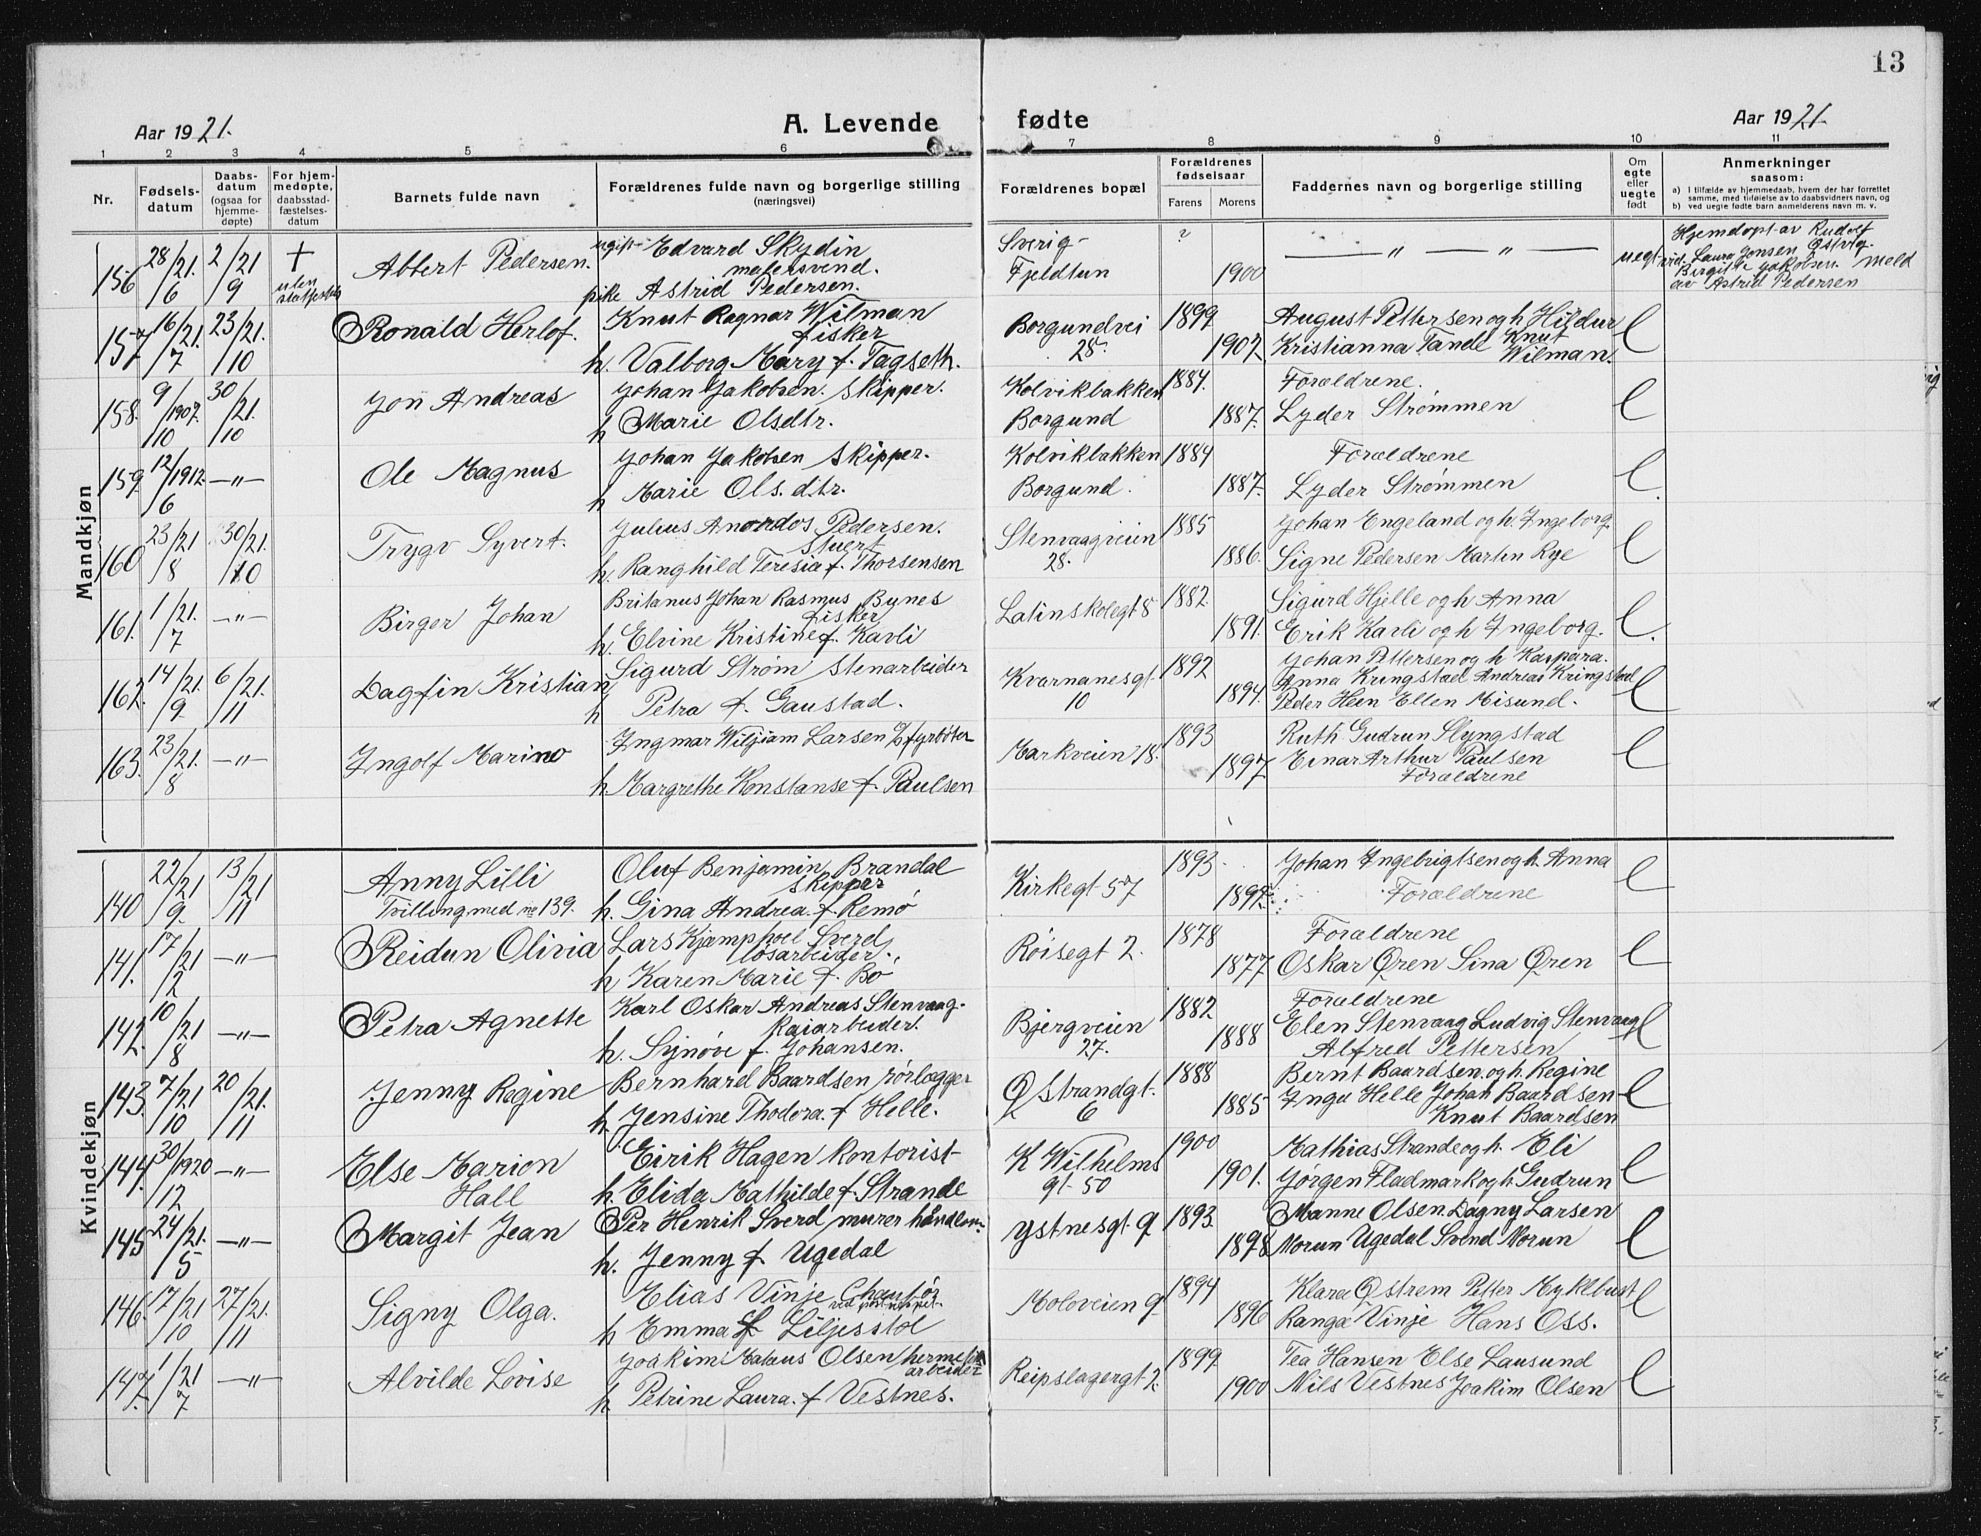 13
Aar 1921.
A. Levende fødte
Aar 1921
1 2 3 4 5 6 7 8 9 10 11
Nr.
Fødsels-
datum
Daabs-
datum
(ogsaa for
hjemme-
døpte)
For hjem-
medøpte,
daabsstad-
fæstelses-
datum
Barnets fulde navn
Forældrenes fulde navn og borgerlige stilling
(næringsvei)
Forældrenes bopæl
Forældrenes
fødselsaar
Farens Morens
Faddernes navn og borgerlige stilling
Om
egte
eller
uegte
født
Anmerkninger
saasom:
a) I tilfælde av hjemmedaab, hvem der har forrettet
samme, med tilføielse av to daabsvidners navn, og
b) ved uegte fødte barn anmelderens navn m. v.
Mandkjøn
156 28/21. 6 2/21 9 +
uten
Albert Pedersen.
ugift Edvard Skydin
malersvend.
pike Astrid Pedersen.
Sverig-
Fjeldtun
? 1900
— " — " —
uegt
Hjemdøpt av Rudolf
vid. Laura Jonsen
Birgitte Jakobsen. meld
av Astrid Pedersen
157 16/21. 7 23/21. 10
Ronald Herlof.
Knut Ragnar Wilman
fisker
h. Valborg Mary f. Tagseth.
Borgundvei
28.
1899 1902
August Pettersen og h Hildur
Kristianna Tande Knut
Wilman.
e
158. 9/1907. 10 30/21. 10
Jon Andreas
Johan Jakobsen. Skipper.
h Marie Olsdtr.
Kolvikbakken
Borgund
1884. 1887.
Forældrene.
Lyder Strømmen
e
159 12/1912. 6 —"—
Ole Magnus
Johan Jakobsen Skipper.
h Marie Ols.dtr.
Kolvikbakken
Borgund.
1884 1887.
Forældrene
Lyder Strømmen
e
160 23/21 8 30/21. 10
Trygv Syvert.
Julius Pedersen.
Stuert
h. Ranghild Teresia f. Thorsensen
Stenvaagveien
28.
1885 1886.
Johan Engeland og h. Ingeborg.
Signe Pedersen Martin Rye
e
161. 1/21. 7 —"—
Birger Johan
Britanus Johan Rasmus Bynes
fisker
h. Elvine Kristine f. Karli
Latinskolegt 8
1882. 1891.
Sigurd Hjelle og h Anna
Erik Karli og h Ingeborg.
e
162. 14/21. 9 6/21. 11
Dagfin Kristian
Sigurd Strøm Stenarbeider
h Petra f. Gaustad.
Kvernanesgt.
10
1892 1894.
Johan Pettersen og h Kaspara.
Anna Kringstad Andreas Kringstad
Peder Heen Ellen Misund.
e
163. 23/21. 8 —"—
Ingolf Marino
Ingmar Wiljiam Larsen fyrbøter
h. Margrethe Konstanse f. Paulsen
Markveien 18.
1893 1897
Ruth Gudrun Slyngstad
Einar Arthur Paulsen
Forældrene
e
Kvindekjøn
140 22/21 9 13/21 11
Anny Lilli
Tvilling med no 139.
Oluf Benjamin Brandal
skipper
h. Gina Andrea f. Remø
Kirkegt 57
1893. 1897
Johan Ingebrigtsen og h. Anna
Forældrene
e
141. 17/21 2 —"—
Reidun Olivia
Lars Kjæmphoel Sverd
løsarbeider.
h. Karen Marie f. Bø
Røisegt 2.
1878 1877
Forældrene
Oskar Øren Sina Øren
e
142. 10/21 8 —"—
Petra Agnette
Karl Oskar Andreas Stenvaag.
Kaiarbeider.
h. Synøve f. Johansen.
Bjergveien
27.
1882 1888
Forældrene
Elen Stenvaag Ludvig Stenvaag
Alfred Pettersen
e
143. 7/21 10 20/21. 11
Jenny Regine
Bernhard Baardsen rørlægger
h. Jensine Thodora f Helle.
Ø Strandgt.
6
1888 1885
Bernt Baardsen og h. Regine
Inga Helle Johan Baardsen
Knut Baardsen
e
144. 30/1920 12 —"—
Else Marion
Hall
Eirik Hagen Kontorist
h. Elida Mathilde f. Strande
K Wilhelms
gt. 50
1900 1901.
Mathias Strande og h. Eli
Jørgen Fladmark og h Gudrun
e
145 24/21. 5 —"—
Margit Jean
Per Henrik Sverd murer
h. Jenny f Ugedal
Ystnesgt. 9
1893. 1898
Manne Olsen Dagny Larsen
Morun Ugedal Svend Morun
e
146. 17/21 10 27/21. 11
Signy Olga.
Elias Vinje
h Emma f Liljesstol
Moloveien 9
1894 1896
Klara Østrem Petter Myklebust
Ranga Vinje Hans Oss.
e
147. 1/21 7 —"—
Alvilde Lovise
Joakim Olsen
arbeider
h. Petrine Laura f Vestnes.
Reipslagergt 2.
1899 1900
Tea Hansen Else Lausund
Nils Vestnes Joakim Olsen
e